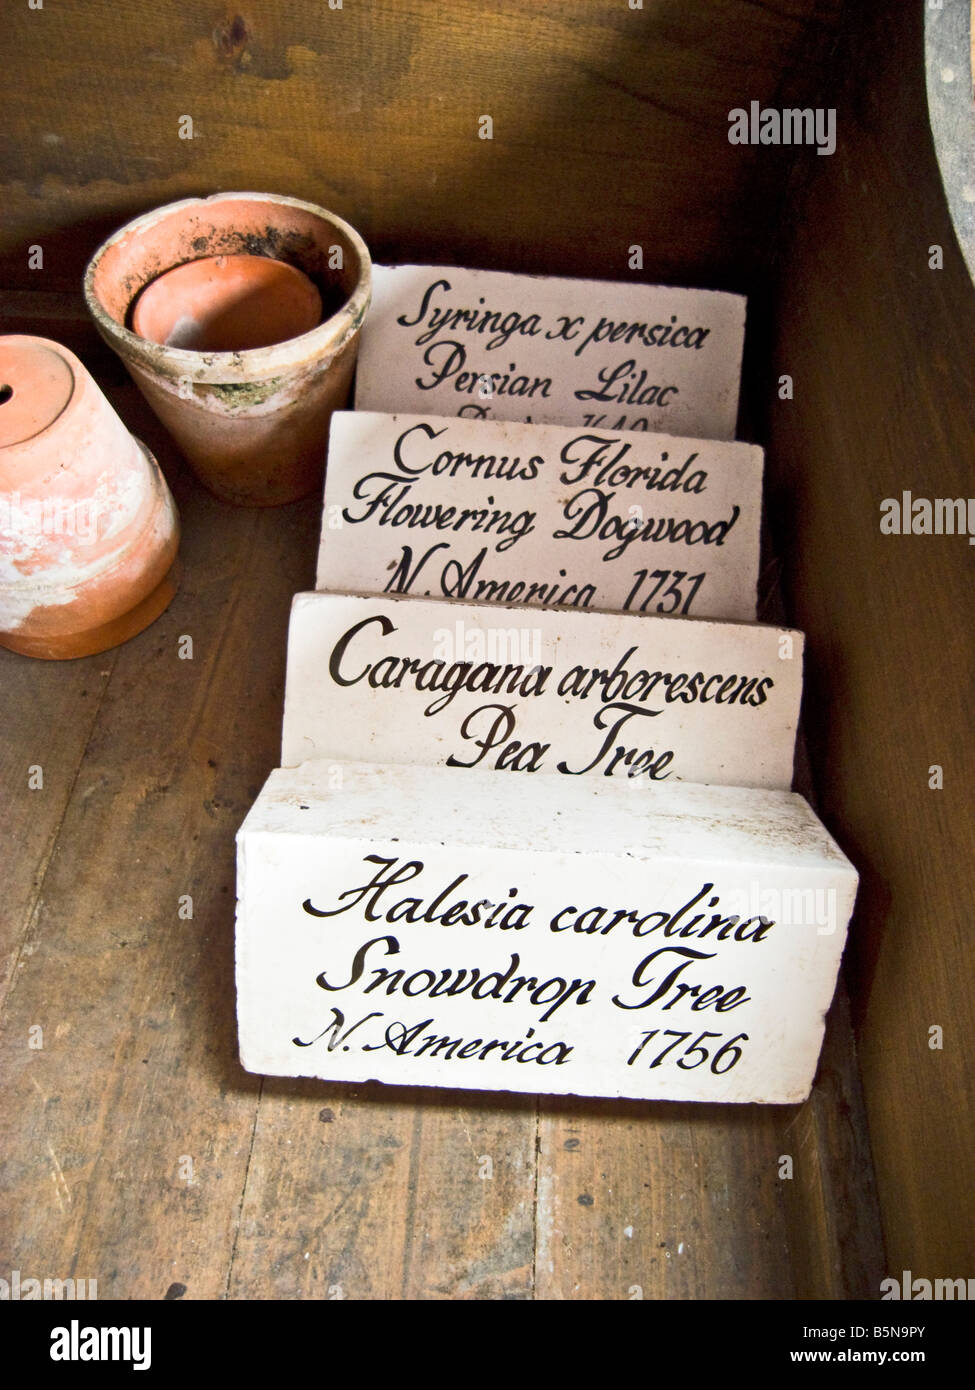 Syringa x persica
Persian Lilac
1640
Cornus Florida
Flowering Dogwood
N. America 1731
Caragana arborescens
Pea Tree
Halesia carolina
Snowdrop Tree
N. America 1756
alamy
alamy
Image ID: B5N9PY
www.alamy.com